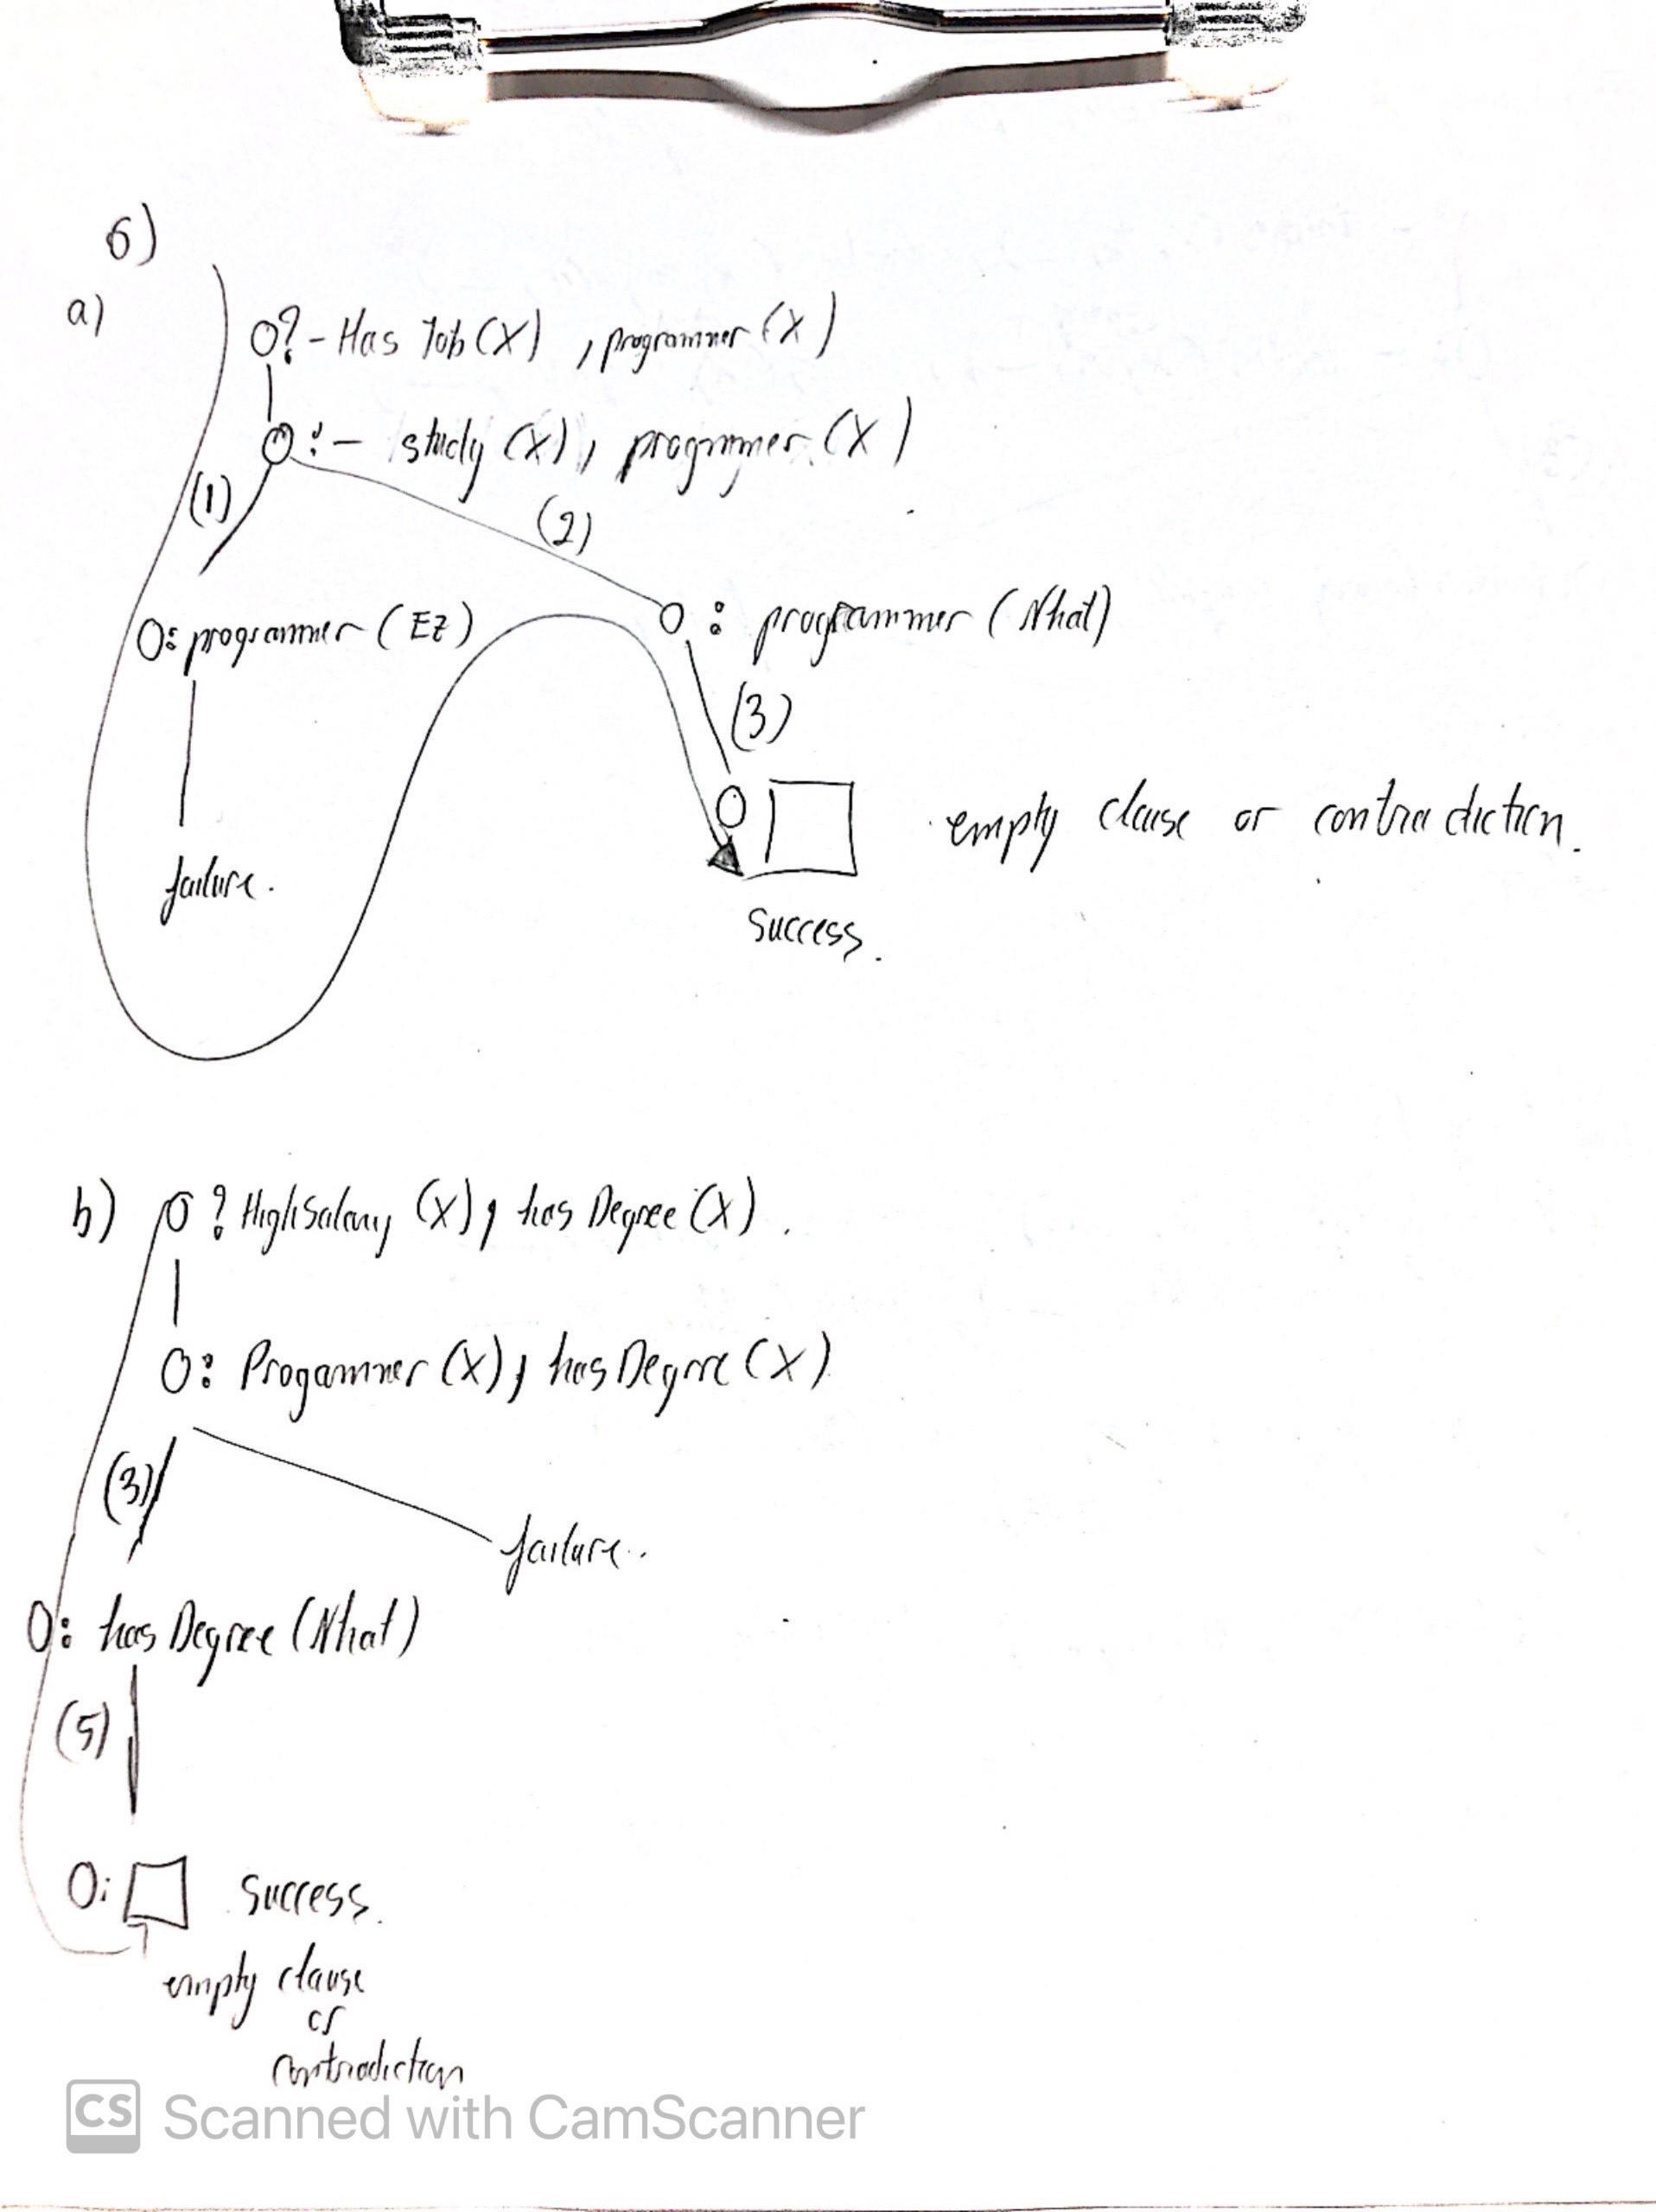 6)
a)
O? - Has Job (X) , programmer (X)
O :- study (X) , progrmmer (X)
(1)
(2)
O: programmer ( Ez )
O : programmer ( Nhat)
(3)
O
empty clause or contradiction.
failure.
Success.
b) O ? HighSalary (X) , has Degree (X) .
O: Progammer (X) , has Degree (X)
(3)
failure.
O: has Degree (Nhat)
(5)
O: Success.
empty clause
or
contradiction
CS Scanned with CamScanner